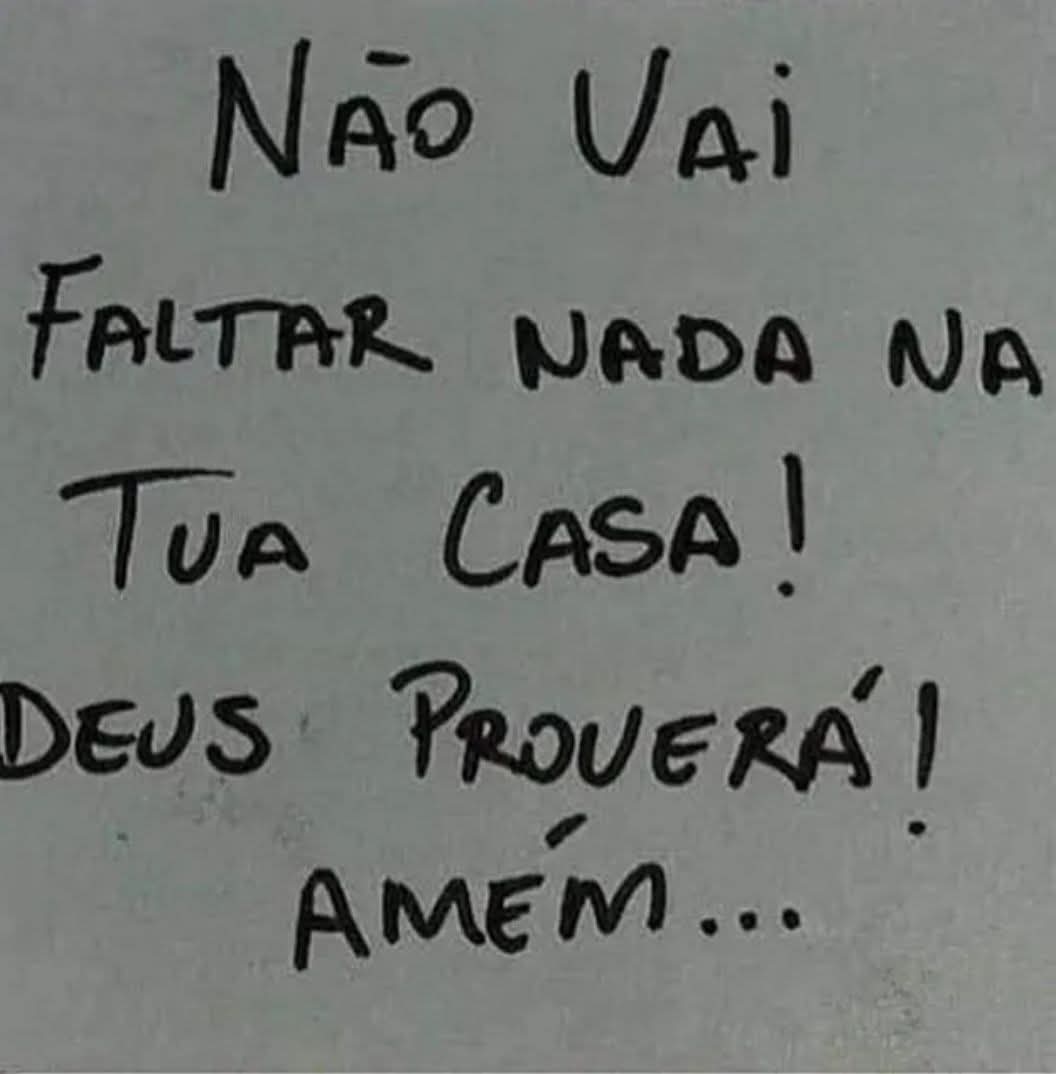 NÃO VAi
FALTAR NADA NA
TUA CASA!
DEUS PROVERÁ!
AMÉM...